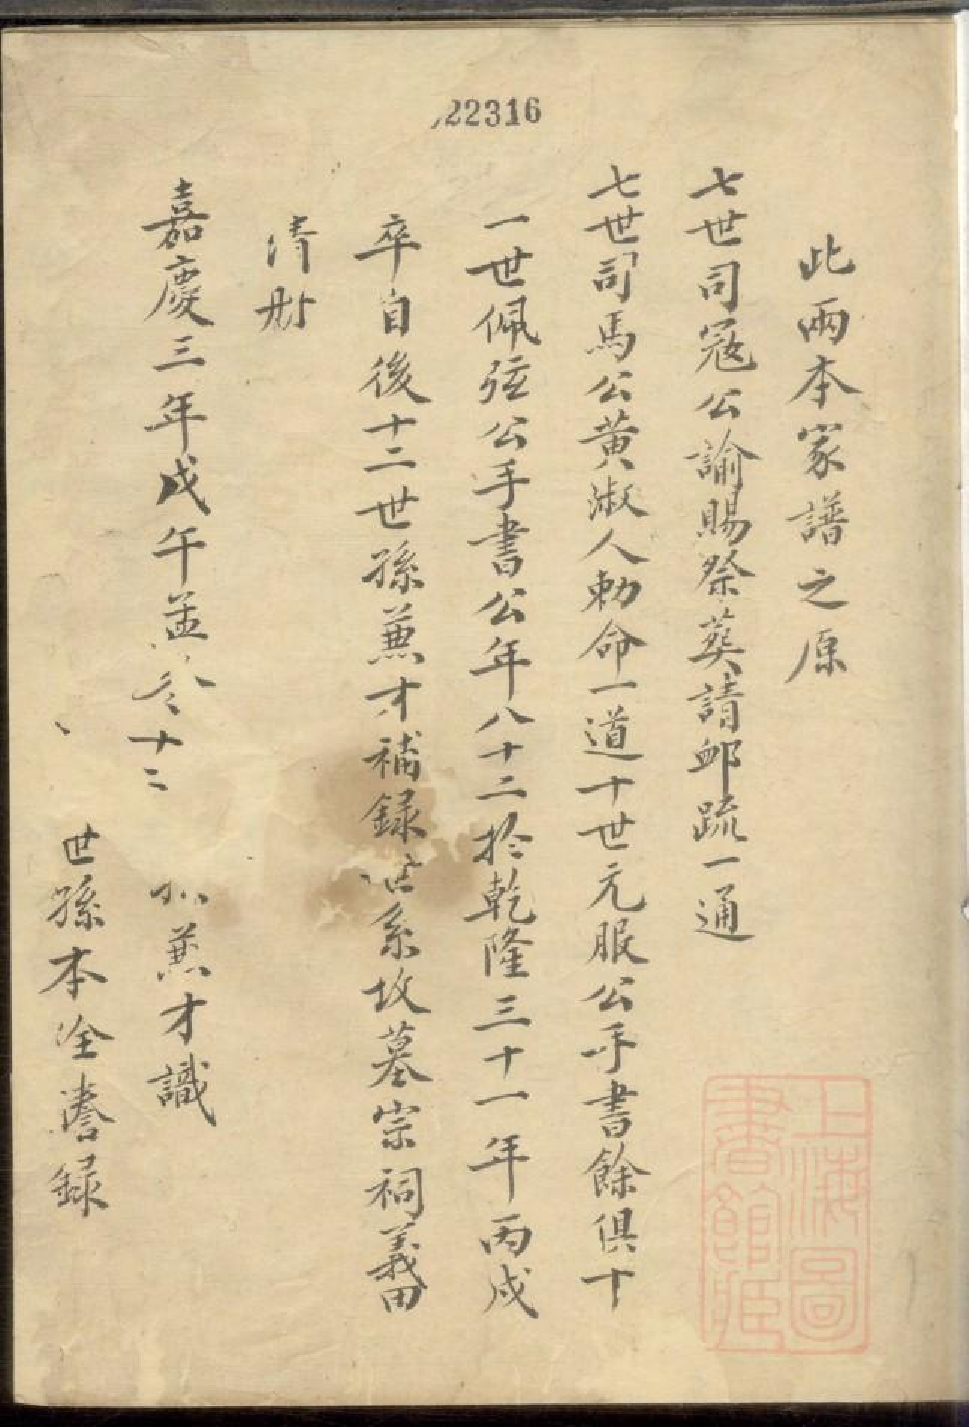 22316
此兩本家譜之原
七世司寇公諭賜祭葬請卹疏一通
七世司馬公黃淑人勅命一道十世元服公手書餘俱十
一世佩弦公手書公年八十二於乾隆三十一年丙戌
卒自後十二世孫蕙才補録世系坟墓宗祠義田
清册
嘉慶三年戊午孟冬十二 孫蕙才識
世孫本全謄録
上海圖書館藏